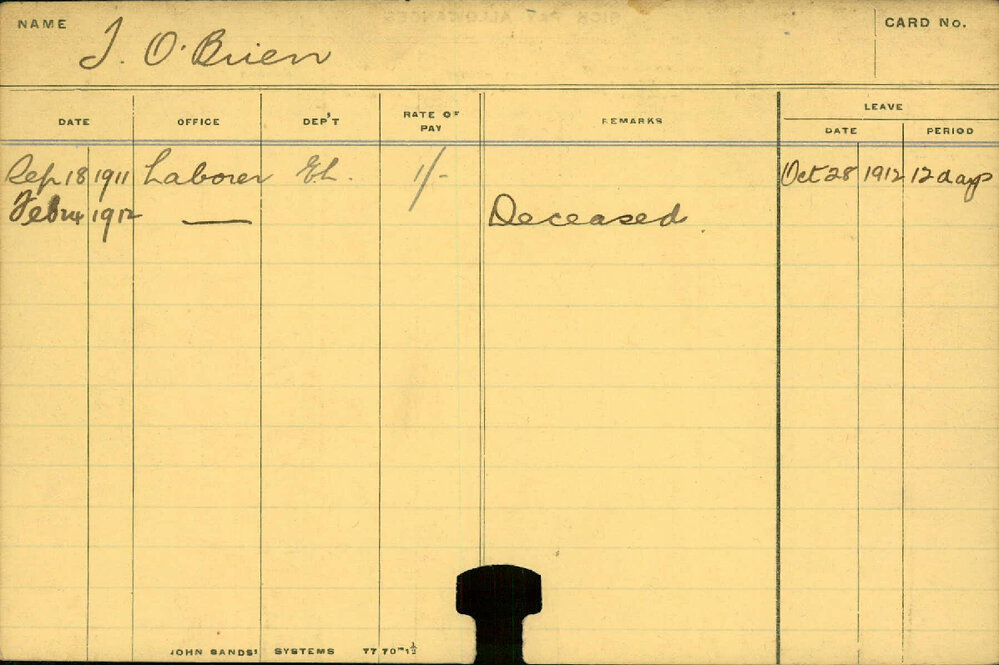 NAME J. O'Brien CARD No.
LEAVE
DATE OFFICE DEP'T RATE OF PAY REMARKS DATE PERIOD
Sep 18 1911 Laborer 1/- Oct 28 1912 12 days
Feb 24 1912 — Deceased
JOHN SANDS' SYSTEMS 77 70